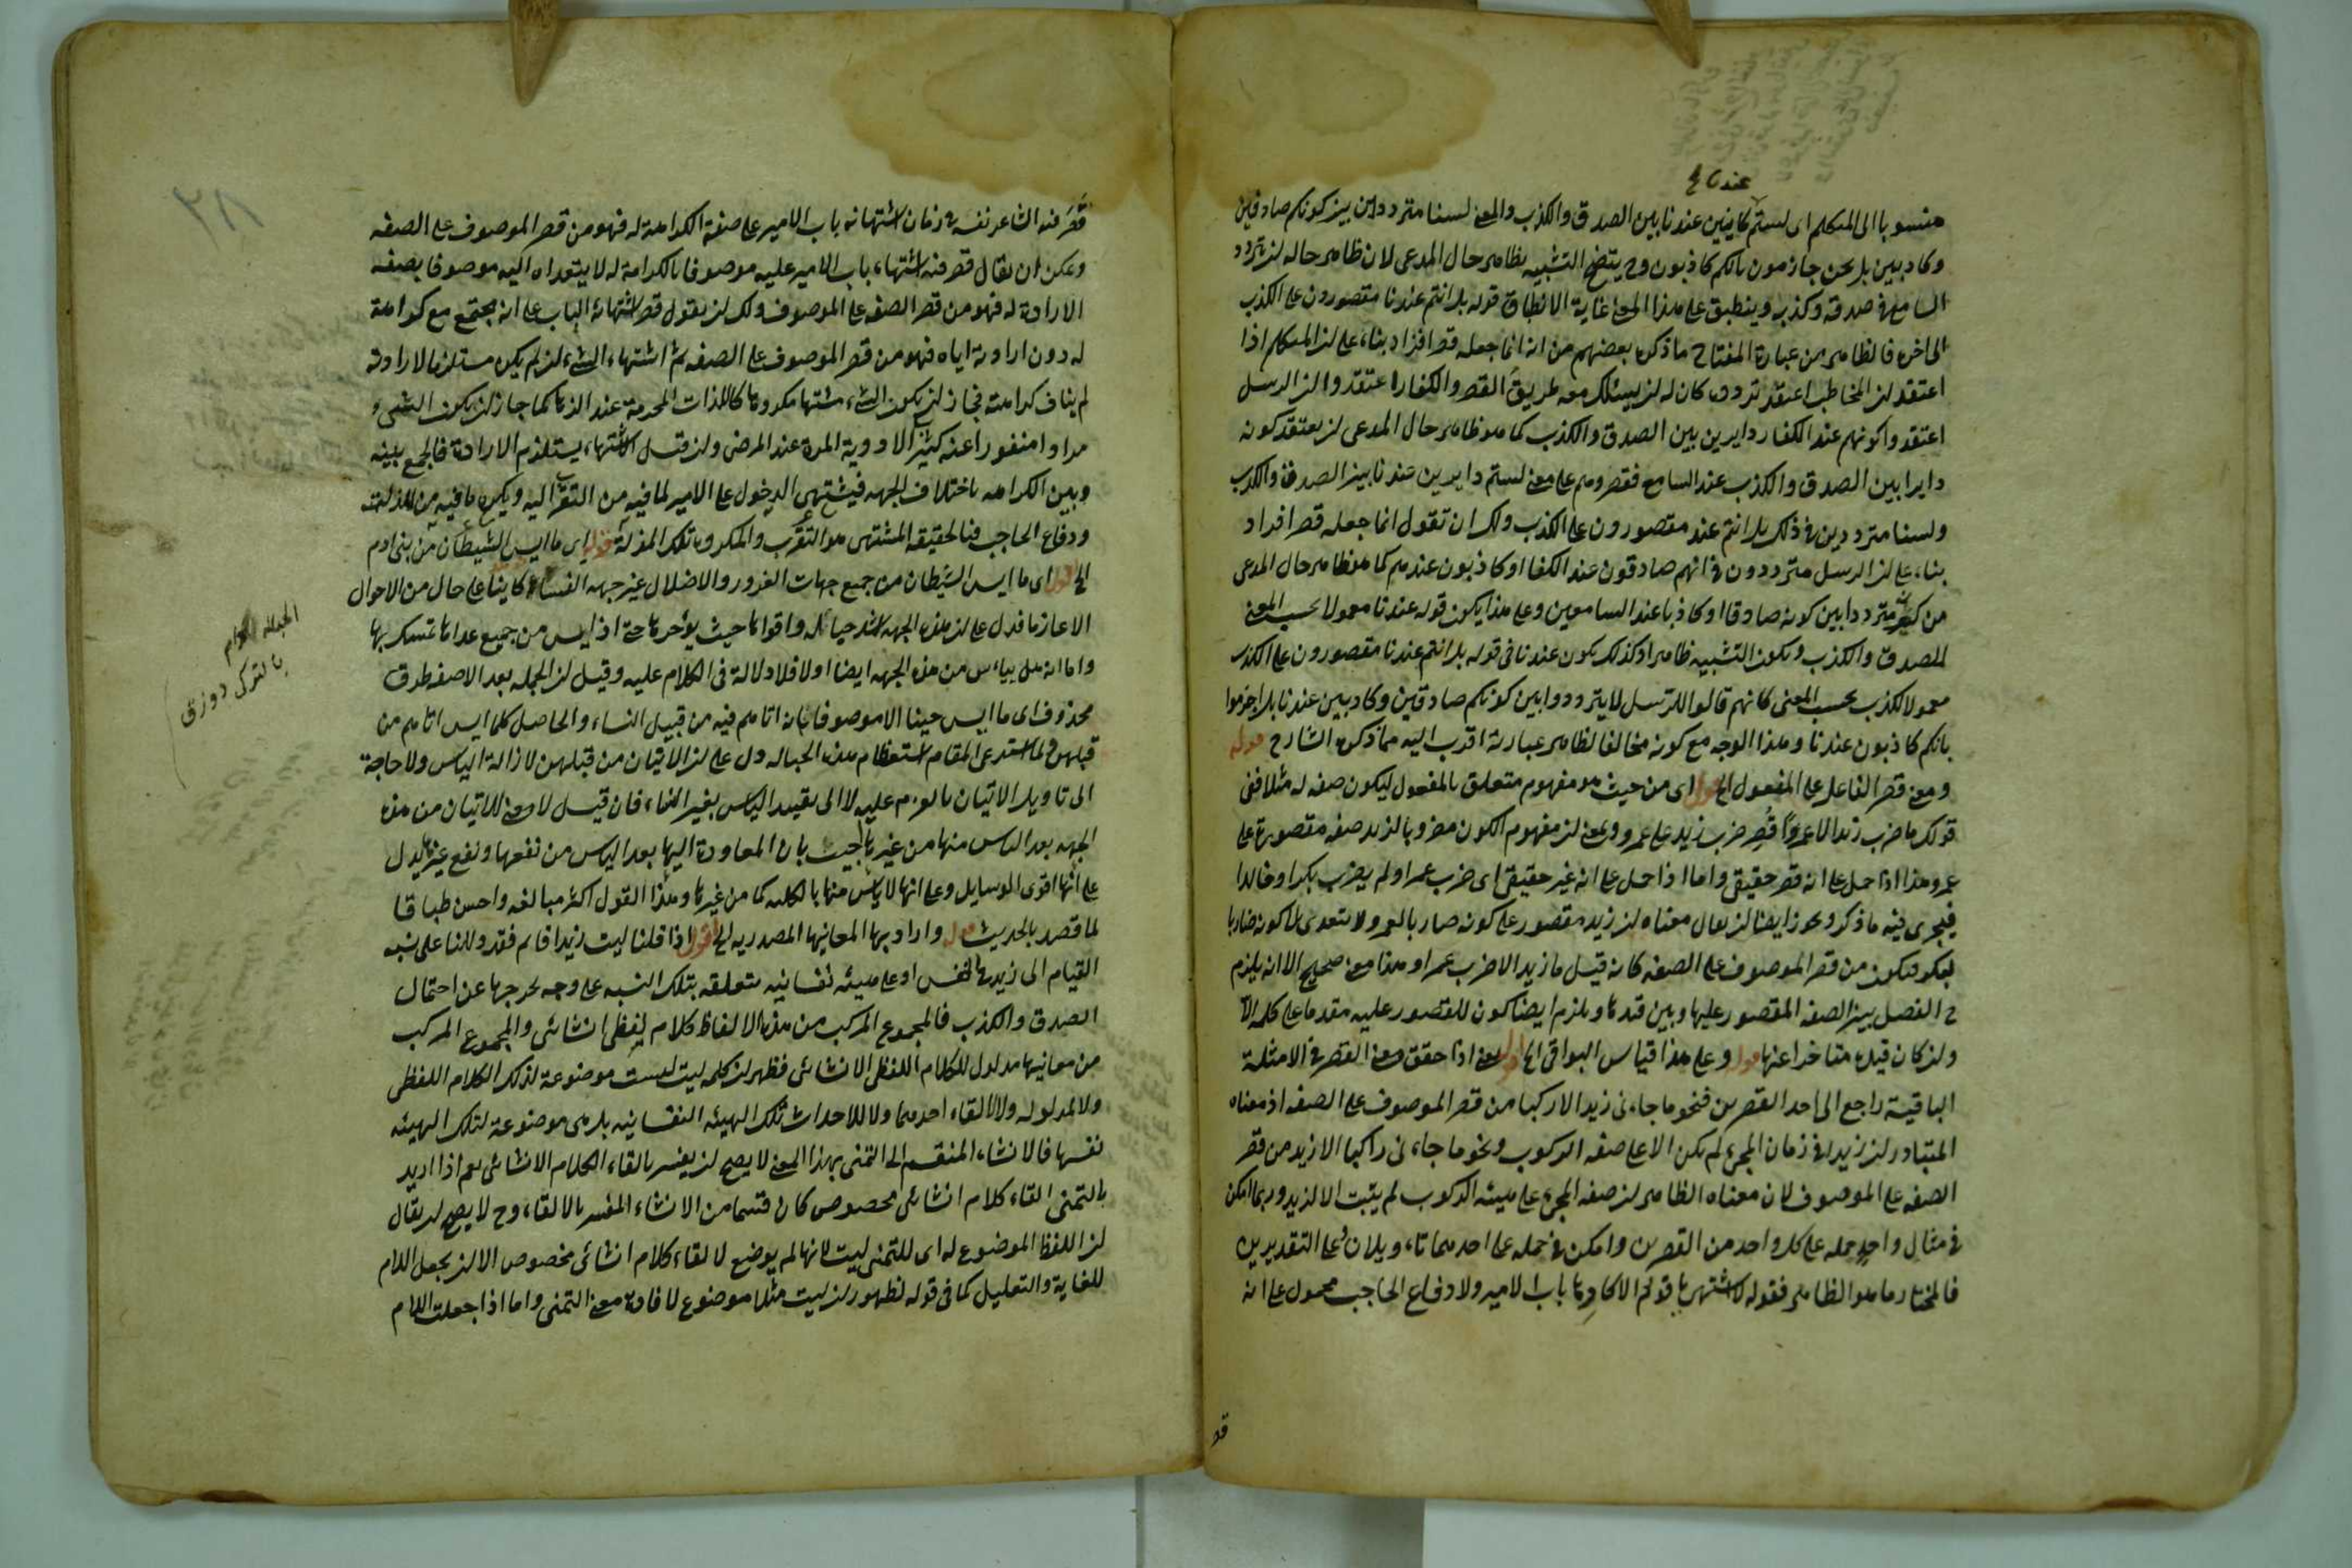 عندنا
منسوبا الى المتكلم اى لستم كاينين عندنا بين الصدق والكذب والمعنى لسنا مترددين بين كونكم صادقين
وكاذبين بل نحن جازمون بانكم كاذبون وح يتضح التشبيه بظاهر حال المدعى لان ظاهر حاله لن تردد
السامع فى صدقه وكذبه وينطبق على هذا المعنى غاية الانطباق قوله بل انتم عندنا مقصورون على الكذب
الى اخره فالظاهر من عبارة المفتاح ما ذكره بعضهم من انه انما جعله قصر افراد بناء على لن المتكلم اذا
اعتقد لن المخاطب اعتقد تردده كان له لن يسلك معه طريق القصر والكفار اعتقدوا لن الرسل
اعتقدوا كونهم عند الكفار دايرين بين الصدق والكذب كما هو ظاهر حال المدعى لن يعتقد كونه
دايرا بين الصدق والكذب عند السامع فقصروهم على معنى لستم دايرين عندنا بين الصدق والكذب
ولسنا مترددين فى ذلك بل انتم عندنا مقصورون على الكذب ولك ان تقول انما جعله قصر افراد
بناء على لن الرسل مترددون فى انهم صادقون عند الكفار او كاذبون عندهم كما هو ظاهر حال المدعى
من كونه مترددا بين كونه صادقا او كاذبا عند السامعين وعلى هذا يكون قوله عندنا معمولا بحسب المعنى
للصدق والكذب ويكون التشبيه ظاهرا وكذلك يكون عندنا فى قوله بل انتم عندنا مقصورون على الكذب
معمولا للكذب بحسب المعنى كانهم قالوا للرسل لا يترددوا بين كونكم صادقين وكاذبين عندنا بل اجزموا
بانكم كاذبون عندنا وهذا الوجه مع كونه مخالفا لظاهر عبارته اقرب اليه مما ذكره الشارح قوله
ومعنى قصر الفاعل على المفعول الخ اقول اى من حيث هو مفهوم متعلق بالمفعول ليكون صفه له مثلا ففى
قولك ما ضرب زيد الا عمروا قُصِر ضرب زيد على عمرو ويمعنى لن مفهوم الكون مضروبا لزيد صفه مقصورة على
عمرو هذا اذا حمل على انه قصر حقيقى واما اذا حمل على انه غير حقيقى اى ضرب عمرا ولم يضرب بكرا وخالدا
فيجرى فيه ما ذكر ويجوز ايضا لن يقال معناه لن زيدا مقصور على كونه ضاربا لعمرو ولا يتعدى الى كونه ضاربا
لبكر فيكون من قصر الموصوف على الصفه كانه قيل ما زيد الا ضرب عمرا وهذا معنى صحيح الا انه يلزم
ح الفصل بين الصفه المقصور عليها وبين قيدها ويلزم ايضا كون المقصور عليه مقدما على كلمه الا
ولن كان قيده متاخرا عنها قوله وعلى هذا قياس البواقى الخ اقول يعنى اذا حقق معنى القصر فى الامثلة
الباقية راجع الى احد القصرين فنحو ما جاءنى زيد الا راكبا من قصر الموصوف على الصفه اذ معناه
المتبادر لن زيدا فى زمان المجىء لم يكن الا على صفه الركوب ونحو ما جاءنى راكبا الا زيد من قصر
الصفه على الموصوف لان معناه الظاهر لن صفه المجىء على هيئه الركوب لم يثبت الا لزيد وربما امكن
فى مثال واحد حمله على كل واحد من القصرين وامكن فى حمله على احدهما تاويلان وعلى التقديرين
فالمختار ما هو الظاهر فقوله لا اشتهى يا قوم الا كارها باب الامير ولا دفاع الحاجب محمول على انه
قصر
٣٨
قَصَر فيه الشاعر نفسه فى زمان اشتهائه باب الامير على صفة الكراهة له فهو من قصر الموصوف على الصفه
ويمكن ان يقال قصر فيه اشتهاء باب الامير عليه موصوفا بالكراهة له لا يتعداه اليه موصوفا بصفه
الارادة له فهو من قصر الصفه على الموصوف ولك لن يقول قصر اشتهائه الباب على انه يجتمع مع كراهة
له دون ارادته اياه فهو من قصر الموصوف على الصفه ثم اشتهاء الشىء لن لم يكن مستلزما لارادته
لم يناف كراهته فجاز لن يكون الشىء مشتها مكروها كاللذات المحرمة عند الزهاد كما جاز لن يكون الشىء
مرادا منفورا عنه كشرب الادوية المرة عند المرض ولن قيل الاشتهاء يستلزم الارادة فالجمع بينه
وبين الكراهه باختلاف الجهه فيشتهى الدخول على الامير لما فيه من التقرب اليه ويكره ما فيه من المذلة
ودفاع الحاجب فبالحقيقه المشتهى هو التقرب والمكروه تلك المذلة قوله اى ما ايس الشيطان من بنى ادم
الخ اقول اى ما ايس الشيطان من جميع جهات الغرور والاضلال غير جهه النساء كاينا على حال من الاحوال
الا عازما فدل على لن هذه الجهه اشد حبائله واقواها حيث يؤخرها حتى اذا ايس من جميع عداها تمسك بها
واما انه هل يياس من هذه الجهه ايضا اولا فلا دلالة فى الكلام عليه وقيل لن الجمله بعد الا صفه ظرف
محذوف اى ما ايس حينا الا موصوفا بانه اتاهم فيه من قبيل النساء والحاصل كلما ايس اتاهم من
قبلهن ولما استدعى المقام استعظام هذه الحباله دل على لن الاتيان من قبلهن لازالة الياس ولا حاجة
الى تاويل الاتيان بالعزم عليه لا الى تقييد الياس بغير النساء فان قيل لا معنى للاتيان من هذه
الجهه بعد الياس منها من غيرها اجيب بان المعاودة اليها بعد الياس من نفعها ونفع غيرها يدل
على انها اقوى الوسايل وعلى انها لا ياس منها بالكليه كما من غيرها وهذا القول اكثر مبالغه واحسن طباقا
لما قصد بالحديث قوله واراد بها المعانيها المصدريه الخ اقول اذا قلنا ليت زيدا قايم فقد دللنا على نسبه
القيام الى زيد فى النفس او على هيئه نفسانيه متعلقه بتلك النسبه على وجه يخرجها عن احتمال
الصدق والكذب فالمجموع المركب من هذه الالفاظ كلام لفظى انشائى والمجموع المركب
من معانيها مدلول للكلام اللفظى الانشائى فظهر لن كلمه ليت ليست موضوعة لذلك الكلام اللفظى
ولا لمدلوله ولا لالقاء احدهما ولا لاحداث تلك الهيئه النفسانيه بل هى موضوعة لتلك الهيئه
نفسها فالانشاء المنقسم الى التمنى بهذا المعنى لا يصح لن يفسر بالقاء الكلام الانشائى نعم اذا اريد
بالتمنى القاء كلام انشائى مخصوص كان قسما من الانشاء المفسر بالالقاء وح لا يصح لن يقال
لن اللفظ الموضوع له اى للتمنى ليت لانها لم يوضع لالقاء كلام انشائى مخصوص الا لن يجعل اللام
للغاية والتعليل كما فى قوله لظهور لن ليت مثلا موضوع لافادة معنى التمنى واما اذا جعلت اللام
بالتركى دوزق